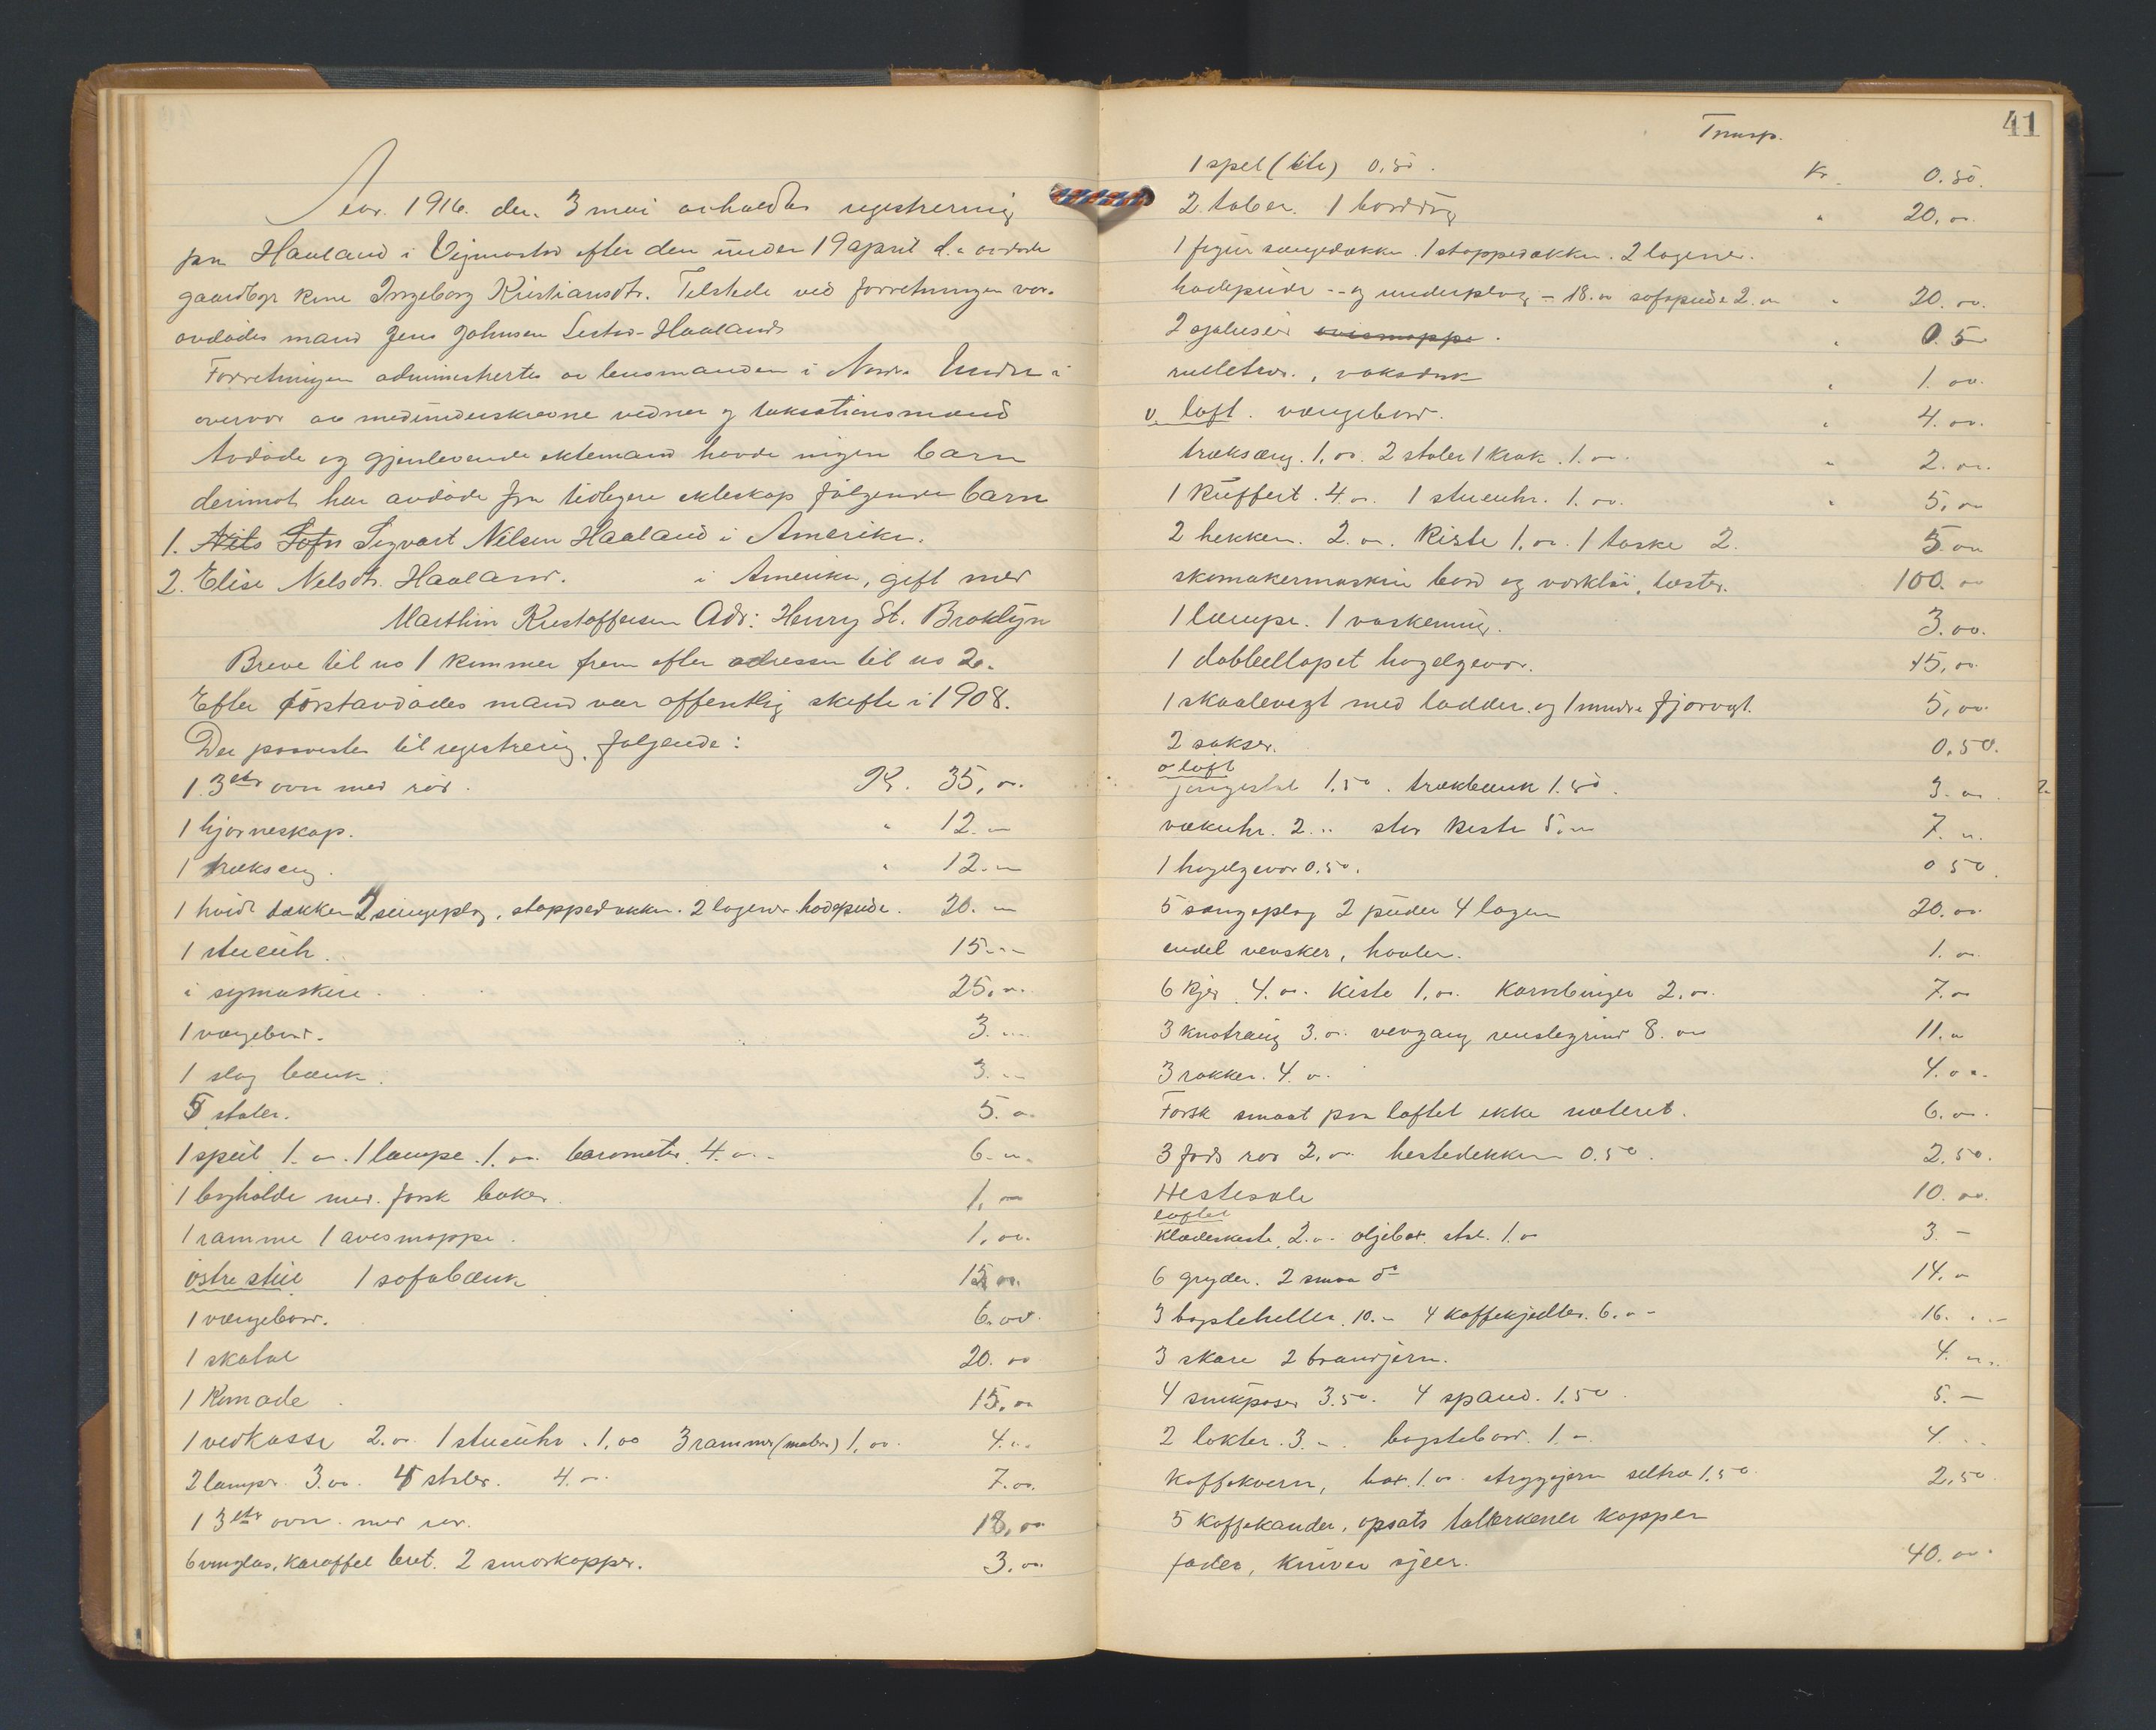 Aar. 1916. den. 3 mai avholdtes registrering
paa Haaland i Vigmostad efter den under 19 april d.a avdøde
gaardbgr kone Ingeborg Kristiansdtr. Tilstede ved forretningen var.
avdødes mand Jens Johnsen Haaland
Forretningen administrertes av lensmanden i Nordre Undal i
overvær av medunderskrevne vidner og taksationsmænd
Avdøde og gjenlevende ektemand havde ingen barn
derimot har avdøde fra tidligere ekteskap følgende barn
1. Nils Sigvart Nilsen Haaland i Amerika.
2. Elise Nelsdtr. Haaland. i Amerika, gift med
Marthin Kristoffersen Adr: Henry St. Broklyn
Breve til no 1 kommer frem efter adressen til no 2.
Efter førstavdødes mand var offentlig skifte i 1908.
Der paavistes til registrering følgende:
1. 3 etr ovn med rør. Kr. 35,00.
1 hjørneskap. " 12.00
1 trækseng. " 12.00
1 hvidt dækken 2 sengeplag, stoppedækken. 2 lagener. hodepude. 20.00
1 stueuhr. 15.00
1 symaskine. 25.00
1 vængebord. 3.00
1 slag bænk. 3.00
5 stoler. 5.00
1 speil 1.00. 1 lampe. 1.00. barometer. 4.00. 6.00
1 bogholde med. forsk bøker. 1.00
1 ramme 1 avismappe. 1.00.
østre stue 1 sofabænk 15.00.
1 vængebord. 6.00.
1 skatol 20.00
1 Komode. 15.00
1 vedkasse 2.00. 1 stueuhr. 1.00 3 rammer (maler) 1.00. 4.00
2 lamper. 3.00. 4 stoler. 4.00. 7.00.
1 3 etr ovn. med rør. 18.00
6 vinglas, karaffel bret. 2 smørkopper. 3.00.
41
Transp.
1 spel (lite) 0,50. Kr. 0.50.
2 tober. 1 borddug " 20.00
1 figur sengedækken. 1 stoppedækken. 2 lagener.
hodepude -- og underplag - 18.00 sofapude 2.00 " 20.00.
2 sjalusier avismappe. " 0.5
rulletræ., voksduk " 1.00.
v. loft. vængebord. " 4.00.
trækseng. 1.00. 2 stoler 1 krak. 1.00. " 2.00.
1 kuffert. 4.00. 1 stueuhr. 1.00. " 5.00
2 hekker. 2.00. Kiste 1.00. 1 taske 2. 5.00
skomakermaskin bord og værktøi, læster. 100.00
1 lampe. 1 3.00.
1 dobbelløpet haglgevær. 15.00.
1 skaalevegt med lodder. og 1 mindre fjørvegt. 5.00.
2 sakser. 0.50.
ø loft
1.50. trækbænk 1.50. 3.00.
vækuhr. 2.. stor kiste 5.00 7.00.
1 haglgevær 0.50. 0 50.
5 sengeplag 2 puder 4 lagen 20.00.
endel vensker, høvler. 1.00.
6 kjer. 4.00. Kiste 1.00. Kornbinger 2.00. 7.00
3 3.00. vevgang 8.00 11.00
3 rokker. 4.00. 4.00.
Forsk smaat paa loftet ikke noteret. 6.00.
3 2.00. hestedekken 0.50. 2.50.
Hestesale 10.00.
loftet
Klædeskiste. 2.00. oljebox. stol. 1.00 3.-
6 gryder. 2 smaa do 14.00
3 bagsteheller. 10.- 4 kaffekjedler. 6.- 16...-
3 skore 2 brandjern. 4.00.
4 3.50. 4 spand. 1.50. 5.-
2 lokter. 3.-. bagstebord. 1.-. 4..
Kaffekvern, box. 1.00. strygejern 1.50. 2.50.
5 kaffekander, opsats tallerkener kopper
fader, kniver sjeer. 40.00.